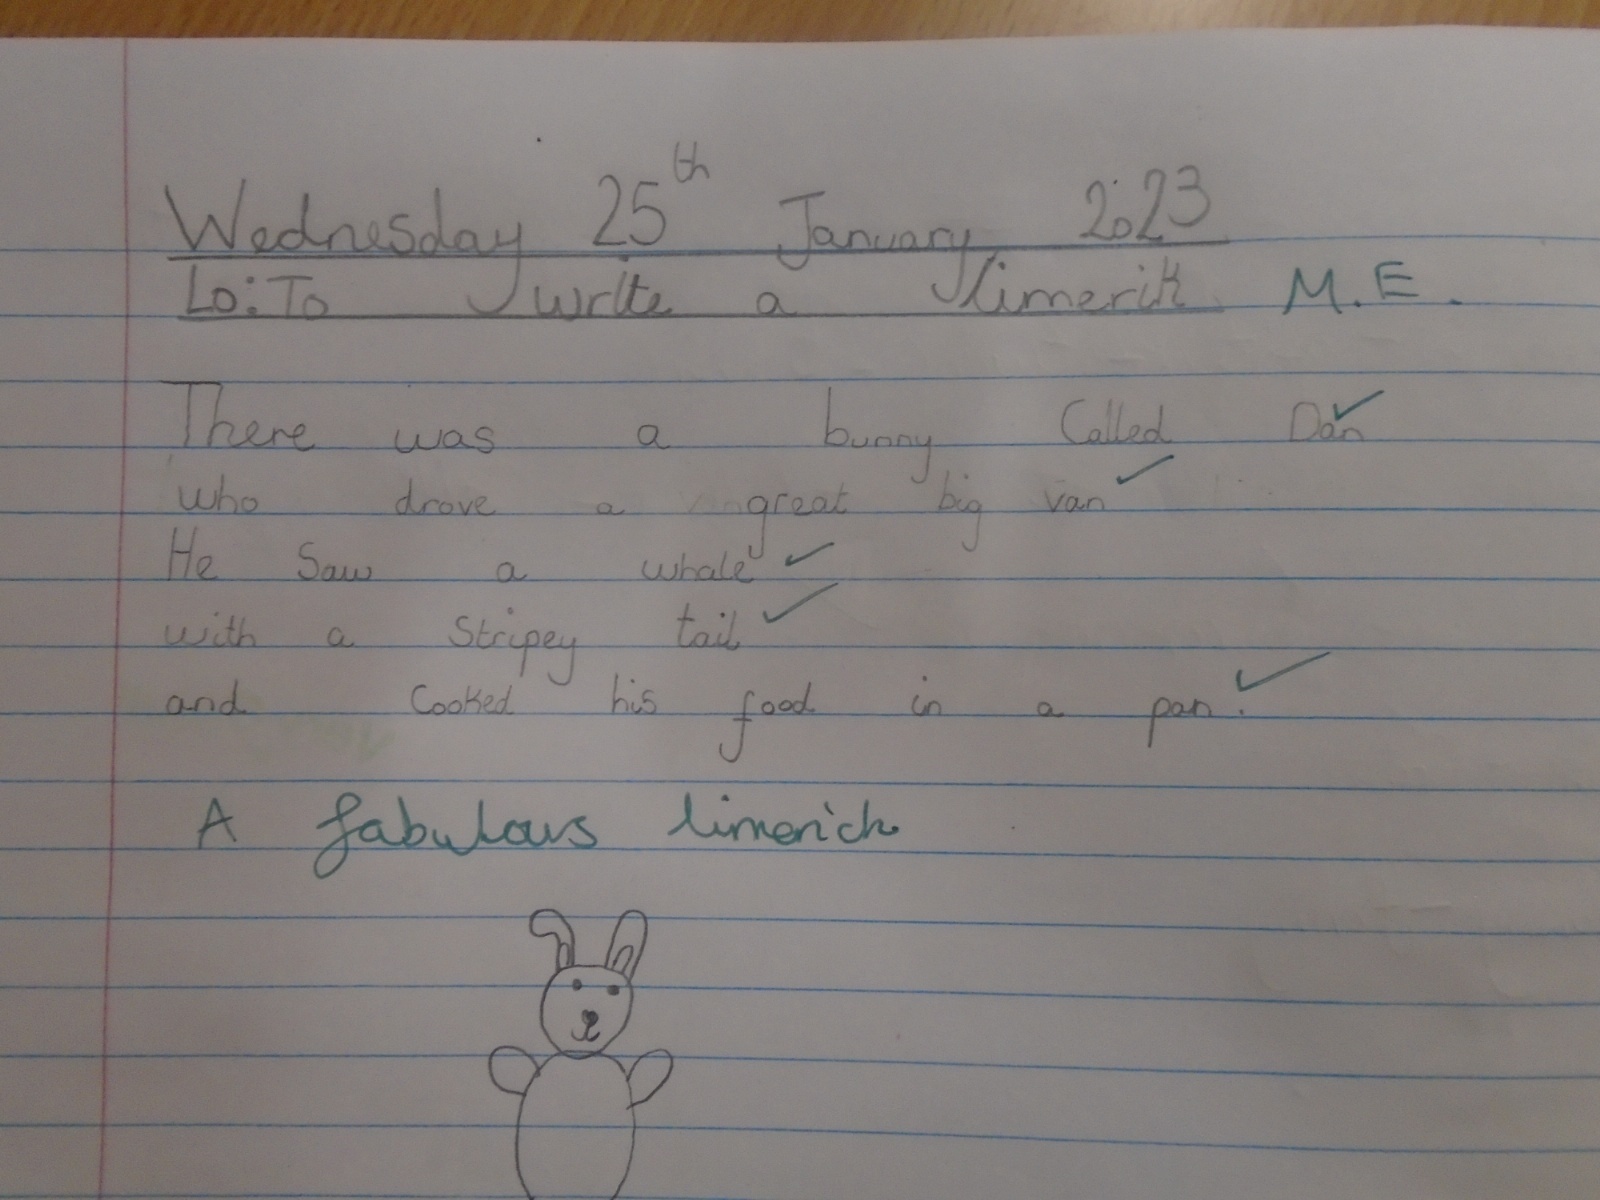 Wednesday 25th January 2023
Lo: To write a limerik M.E.
There was a bunny Called Dan
who drove a great big van
He Saw a whale
with a Stripey tail
and Cooked his food in a pan.
A fabulous limerick